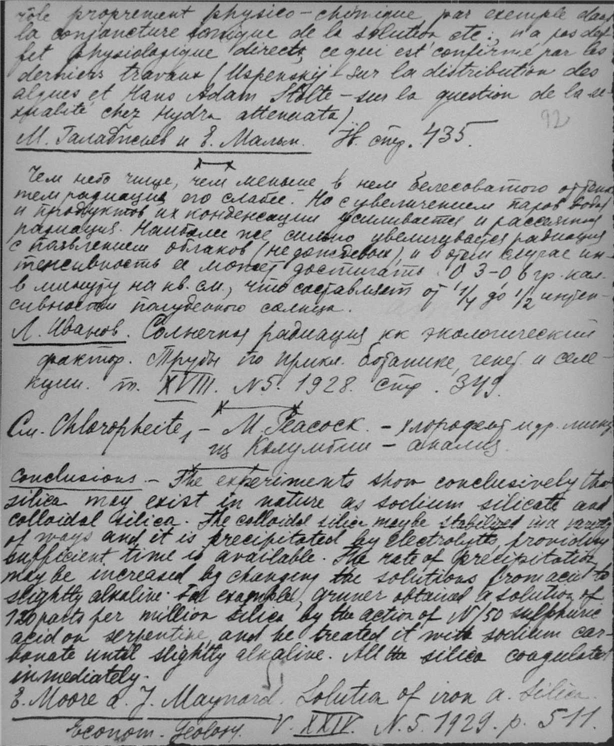 rôle proprement physico-chimique par exemple dans
la conjoncture ionique de la solution etc., n'a pas d'ef
fet physiologique direct, ce qui est confirmé par les
derniers travaux (Uspenskij - sur la distribution des
algues et Hans Adam Stolte - sur la question de la se
xualité chez Hydra attenuata)
92
М. и Е. стр. 435.
Чем небо чище, чем меньше в нем белесоватого оттенка
тем радиация его слабее. Но с увеличением паров воды
и продуктов их конденсации усиливается и рассеянная
радиация. Наиболее же сильно увеличивается радиация
с появлением облаков (не дождевых), и в этом случае ин
тенсивность ее может достигать 0 3-0 6 гр. кал.
в минуту на кв. см, что составляет от 1/4 до 1/2 интен
сивности полуденного солнца.
Л. Иванов. Солнечная радиация как экологический
фактор. Труды по прикл. ботанике, генет. и селе
кции. т. XVIII. N5. 1928. стр. 349.
См. Chlorophaeite, - M. Peacock - и др. минер.
из Колумбии - анализ.
Conclusions - The experiments show conclusively tha
silica may exist in nature as sodium silicate and
colloidal silica. The colloidal silica may be stabilized in a variety
of ways and it is precipitated by electrolytes providing
sufficient time is available. The rate of precipitation
may be increased by changing the solutions from acid to
slightly alkaline. For example, Gruner obtained a solution of
120 parts per million silica by the action of N/50 sulphuric
acid on serpentine, and he treated it with sodium car
bonate until slightly alkaline. All the silica coagulated
immediately.
E. Moore a. J. Maynard. Solution of iron a. silica
Econom. Geology. V. XXIV. N.5. 1929. p. 511.